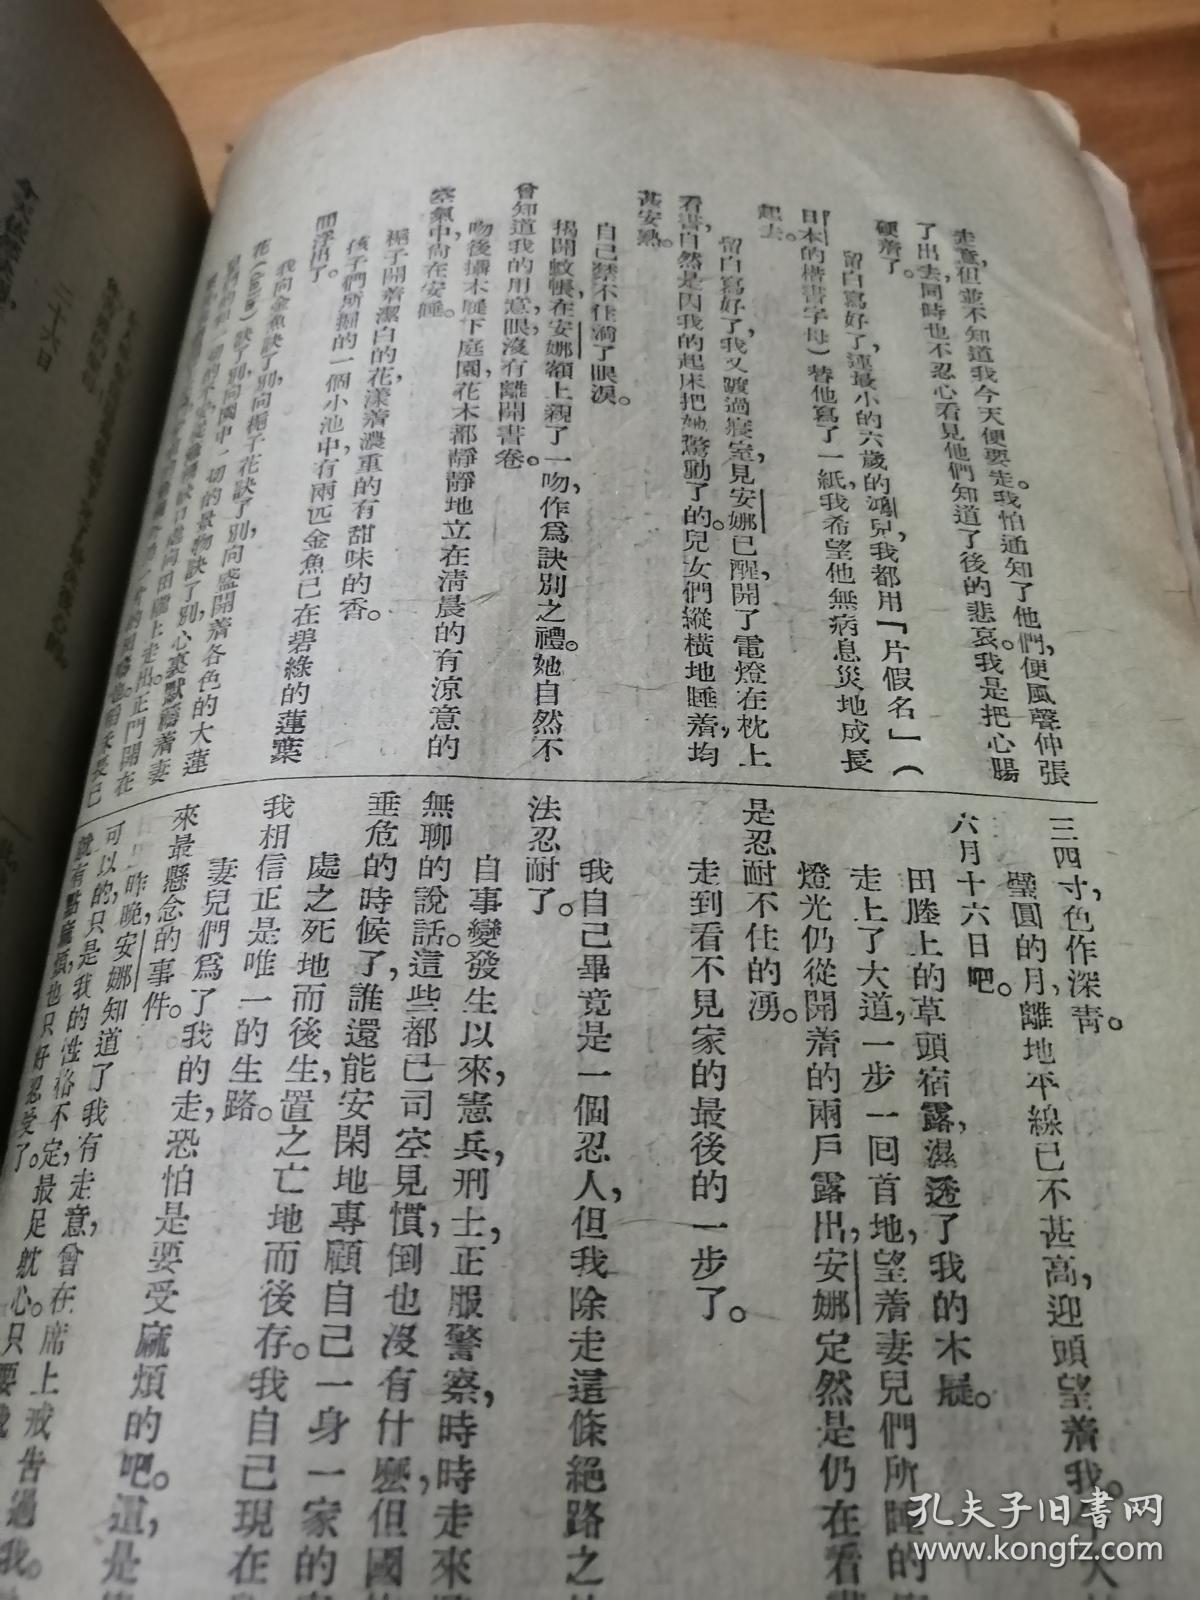 走意,但並不知道我今天便要走。我怕通知了他們,便風聲伸張
了出去,同時也不忍心看見他們知道了後的悲哀。我是把心腸
硬着了。
留白寫好了,連最小的六歲的鴻兒,我都用「片假名」(
日本的楷書字母)替他寫了一紙,我希望他無病息災地成長
起去。
留白寫好了,我又踱過寢室,見安娜已醒,開了電燈在枕上
看書,自然是因我的起床把她驚動了的。兒女們縱橫地睡着,均
甚安熟。
自己禁不住滴了眼淚。
揭開蚊帳,在安娜額上親了一吻,作爲訣別之禮。她自然不
曾知道我的用意,眼沒有離開書卷。
吻後躡木屐下庭園,花木都靜靜地立在清晨的有涼意的
空氣中,尙在安睡。
梔子開着潔白的花,漾着濃重的有甜味的香。
孩子們所掘的一個小池中,有兩匹金魚已在碧綠的蓮葉
間浮出了。
我向金魚訣了別,向梔子花訣了別,向盛開着各色的大蓮
訣了別,向園中一切的景物訣了別,心裏默禱着妻
向田塍上走出。正門開在
三四寸,色作深靑。
璧圓的月,離地平線已不甚高,迎頭望着我。
六月十六日吧。
田塍上的草頭宿露,濕透了我的木屐。
走上了大道,一步一回首地,望着妻兒們所睡的
燈光仍從開着的雨戶露出,安娜定然是仍在看
是忍耐不住的湧。
走到看不見家的最後的一步了。
我自己畢竟是一個忍人,但我除走這條絕路之
法忍耐了。
自事變發生以來,憲兵,刑士,正服警察,時時走來
無聊的說話。這些都已司空見慣,倒也沒有什麼,但國
垂危的時候了,誰還能安閑地專顧自己一身一家的
處之死地而後生,置之亡地而後存。我自己現在
我相信正是唯一的生路。
妻兒們爲了我的走,恐怕是要受麻煩的吧。這,是
來最懸念的事件。
昨晚,安娜知道了我有走意,曾在席上戒告過我。
可以的,只是我的性格不定,最足躭心。只要
就有點麻煩,也只好忍受了。
二十六日
孔夫子旧書网
www.kongfz.com